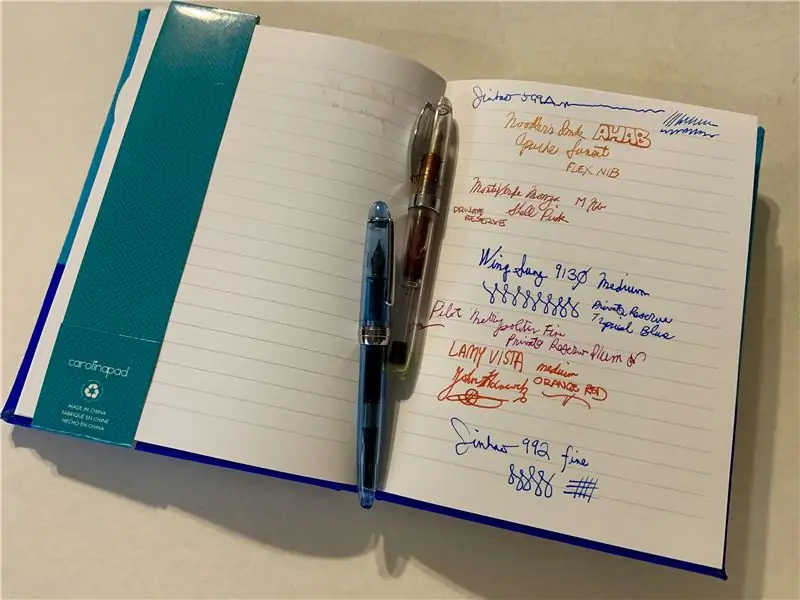 carolinapad
MADE IN CHINA
FABRIQUÉ EN CHINE
HECHO EN CHINA
Jinhao 599A
Noodler's Ink AHAB
Apache Sunset
FLEX NIB
Monteverde Monza M Nib
PRIVATE RESERVE
Shell Pink
Wing Sung 9130 Medium
Private Reserve
Tropical Blue
Pilot Metropolitan Fine
Private Reserve Plum
LAMY VISTA medium
John ORANGE RED
Jinhao 992 fine